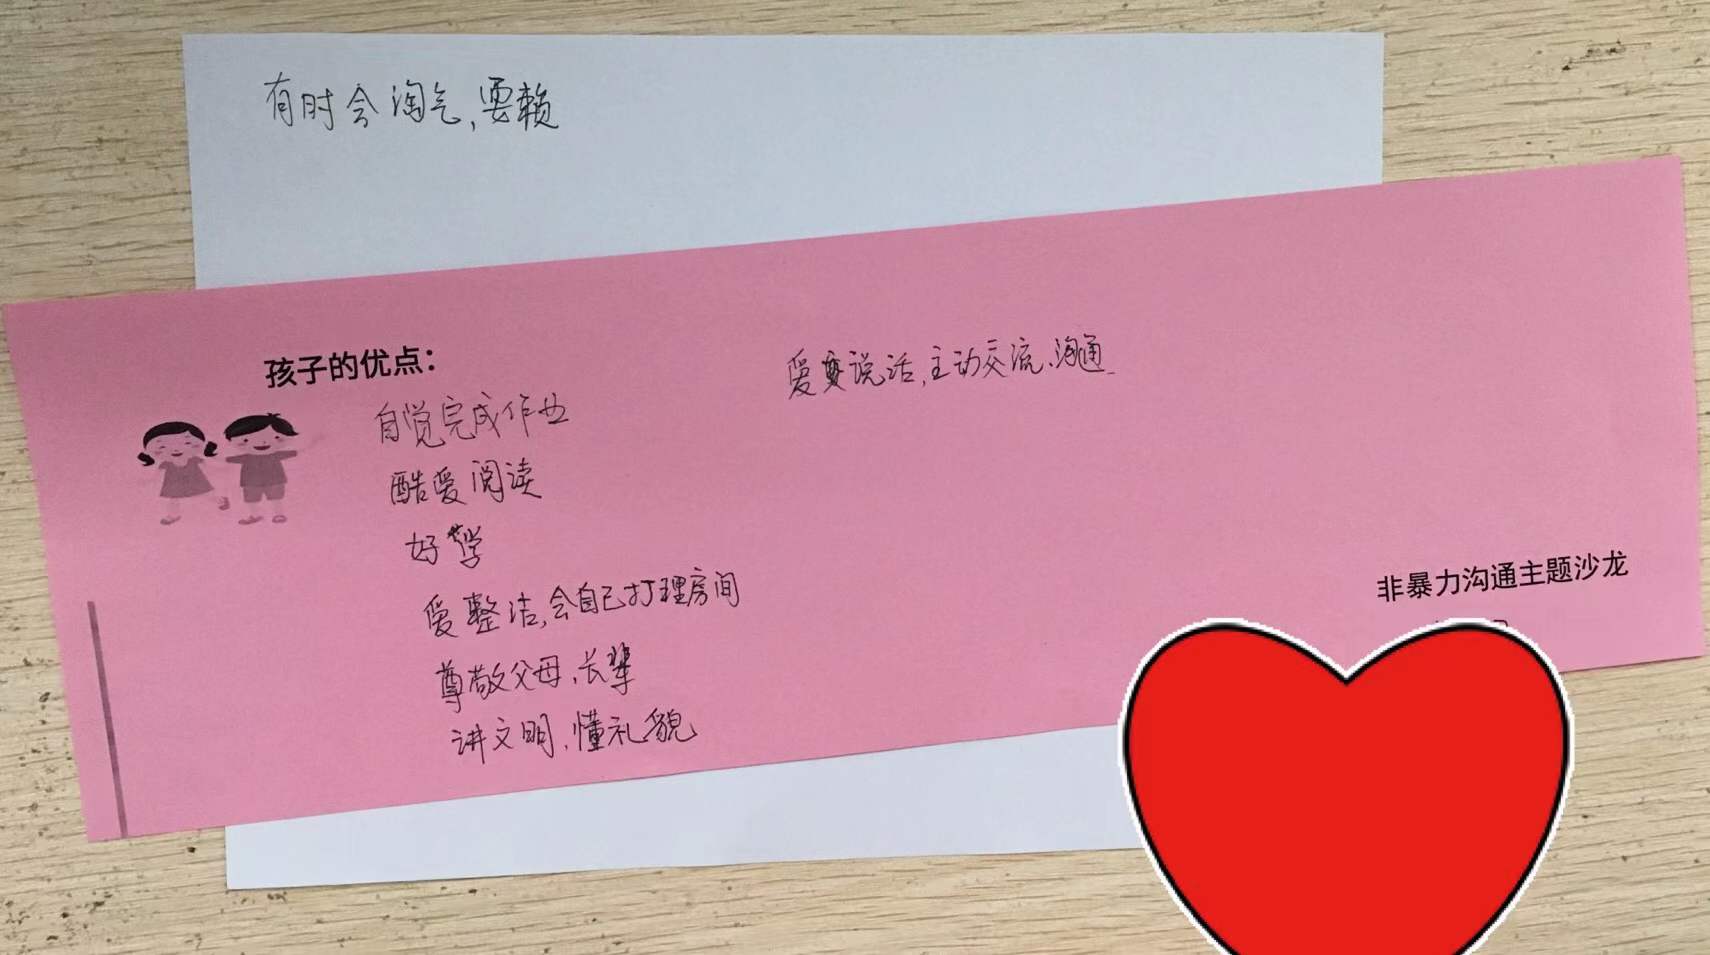 有时会淘气,耍赖
孩子的优点：
自觉完成作业
酷爱阅读
好学
爱整洁,会自己打理房间
尊敬父母、长辈
讲文明、懂礼貌
爱说话,主动交流、沟通
非暴力沟通主题沙龙